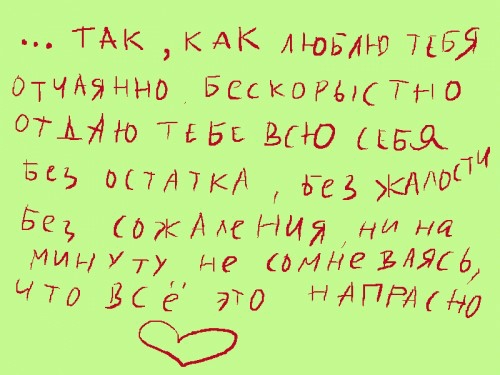 ... ТАК, КАК ЛЮБЛЮ ТЕБЯ
ОТЧАЯННО, БЕСКОРЫСТНО
ОТДАЮ ТЕБЕ ВСЮ СЕБЯ
БЕЗ ОСТАТКА, БЕЗ ЖАЛОСТИ
БЕЗ СОЖАЛЕНИЯ, НИ НА
МИНУТУ НЕ СОМНЕВАЯСЬ,
ЧТО ВСЁ ЭТО НАПРАСНО